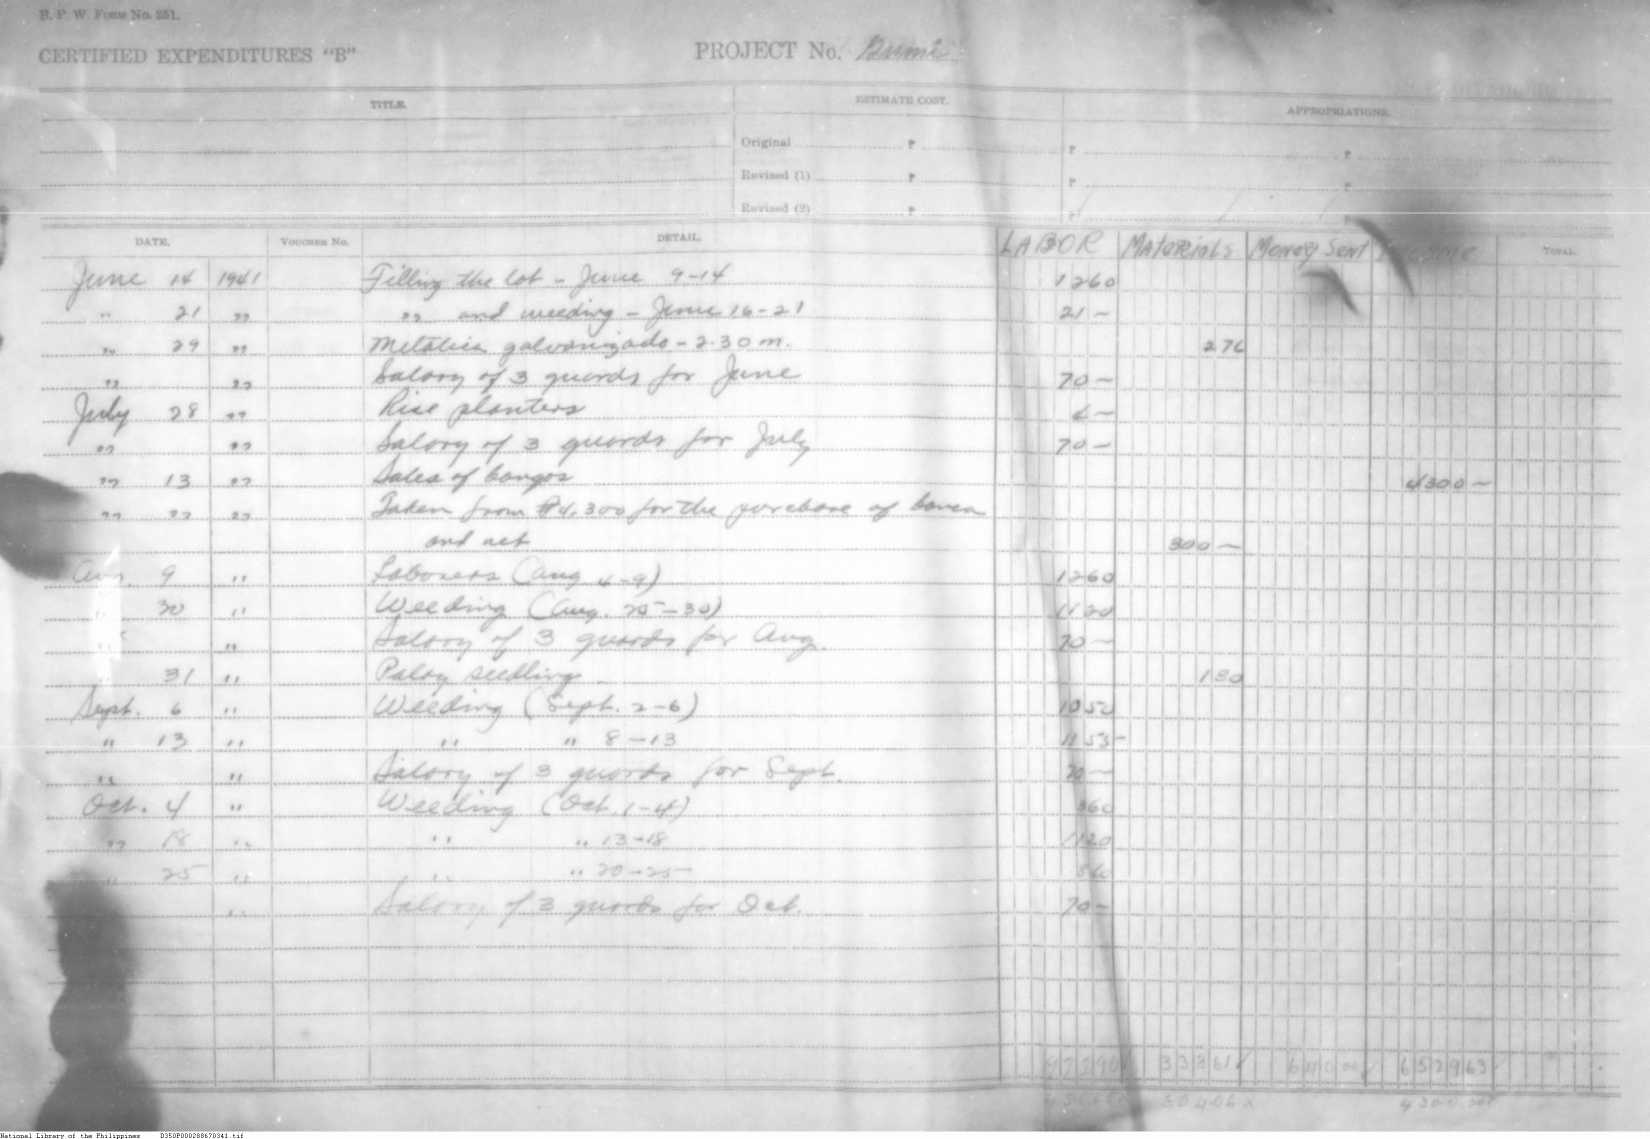 B. P. W. Form No. 251.
CERTIFIED EXPENDITURES "B"
PROJECT No.
TITLE.
ESTIMATE COST.
APPROPRIATIONS.
Original ₱ ₱ ₱
Revised (1) ₱ ₱ ₱
Revised (2) ₱ ₱ ₱
DATE. VOUCHER No. DETAIL. LABOR Materials Money Sent Income TOTAL.
June 14 1941 Filling the lot - June 9-14 1260
" 21 " " and weeding - June 16-21 21 -
" 29 " galvanizado - 2.30 m. 276
" " Salary of 3 guards for June 70 -
July 28 " Rice planters 6 -
" " Salary of 3 guards for July 70 -
" 13 " Sales of bangos 4300 -
" " " Taken from ₱4,300 for the purchase of banca
and net 300 -
Aug. 9 " Laborers (Aug 4-9) 1260
" 30 " Weeding (Aug. 25-30) 1120
" " Salary of 3 guards for Aug. 70 -
31 " Palay seedling 180
Sept. 6 " Weeding (Sept. 2-6) 1050
" 13 " " " 8-13 1153
" " Salary of 3 guards for Sept. 70 -
Oct. 4 " Weeding (Oct. 1-4) 360
" 18 " " " 13-18 1120
" 25 " " " 20-25 560
" Salary of 3 guards for Oct. 70 -
652963
30406
National Library of the Philippines D350P000288670341.tif